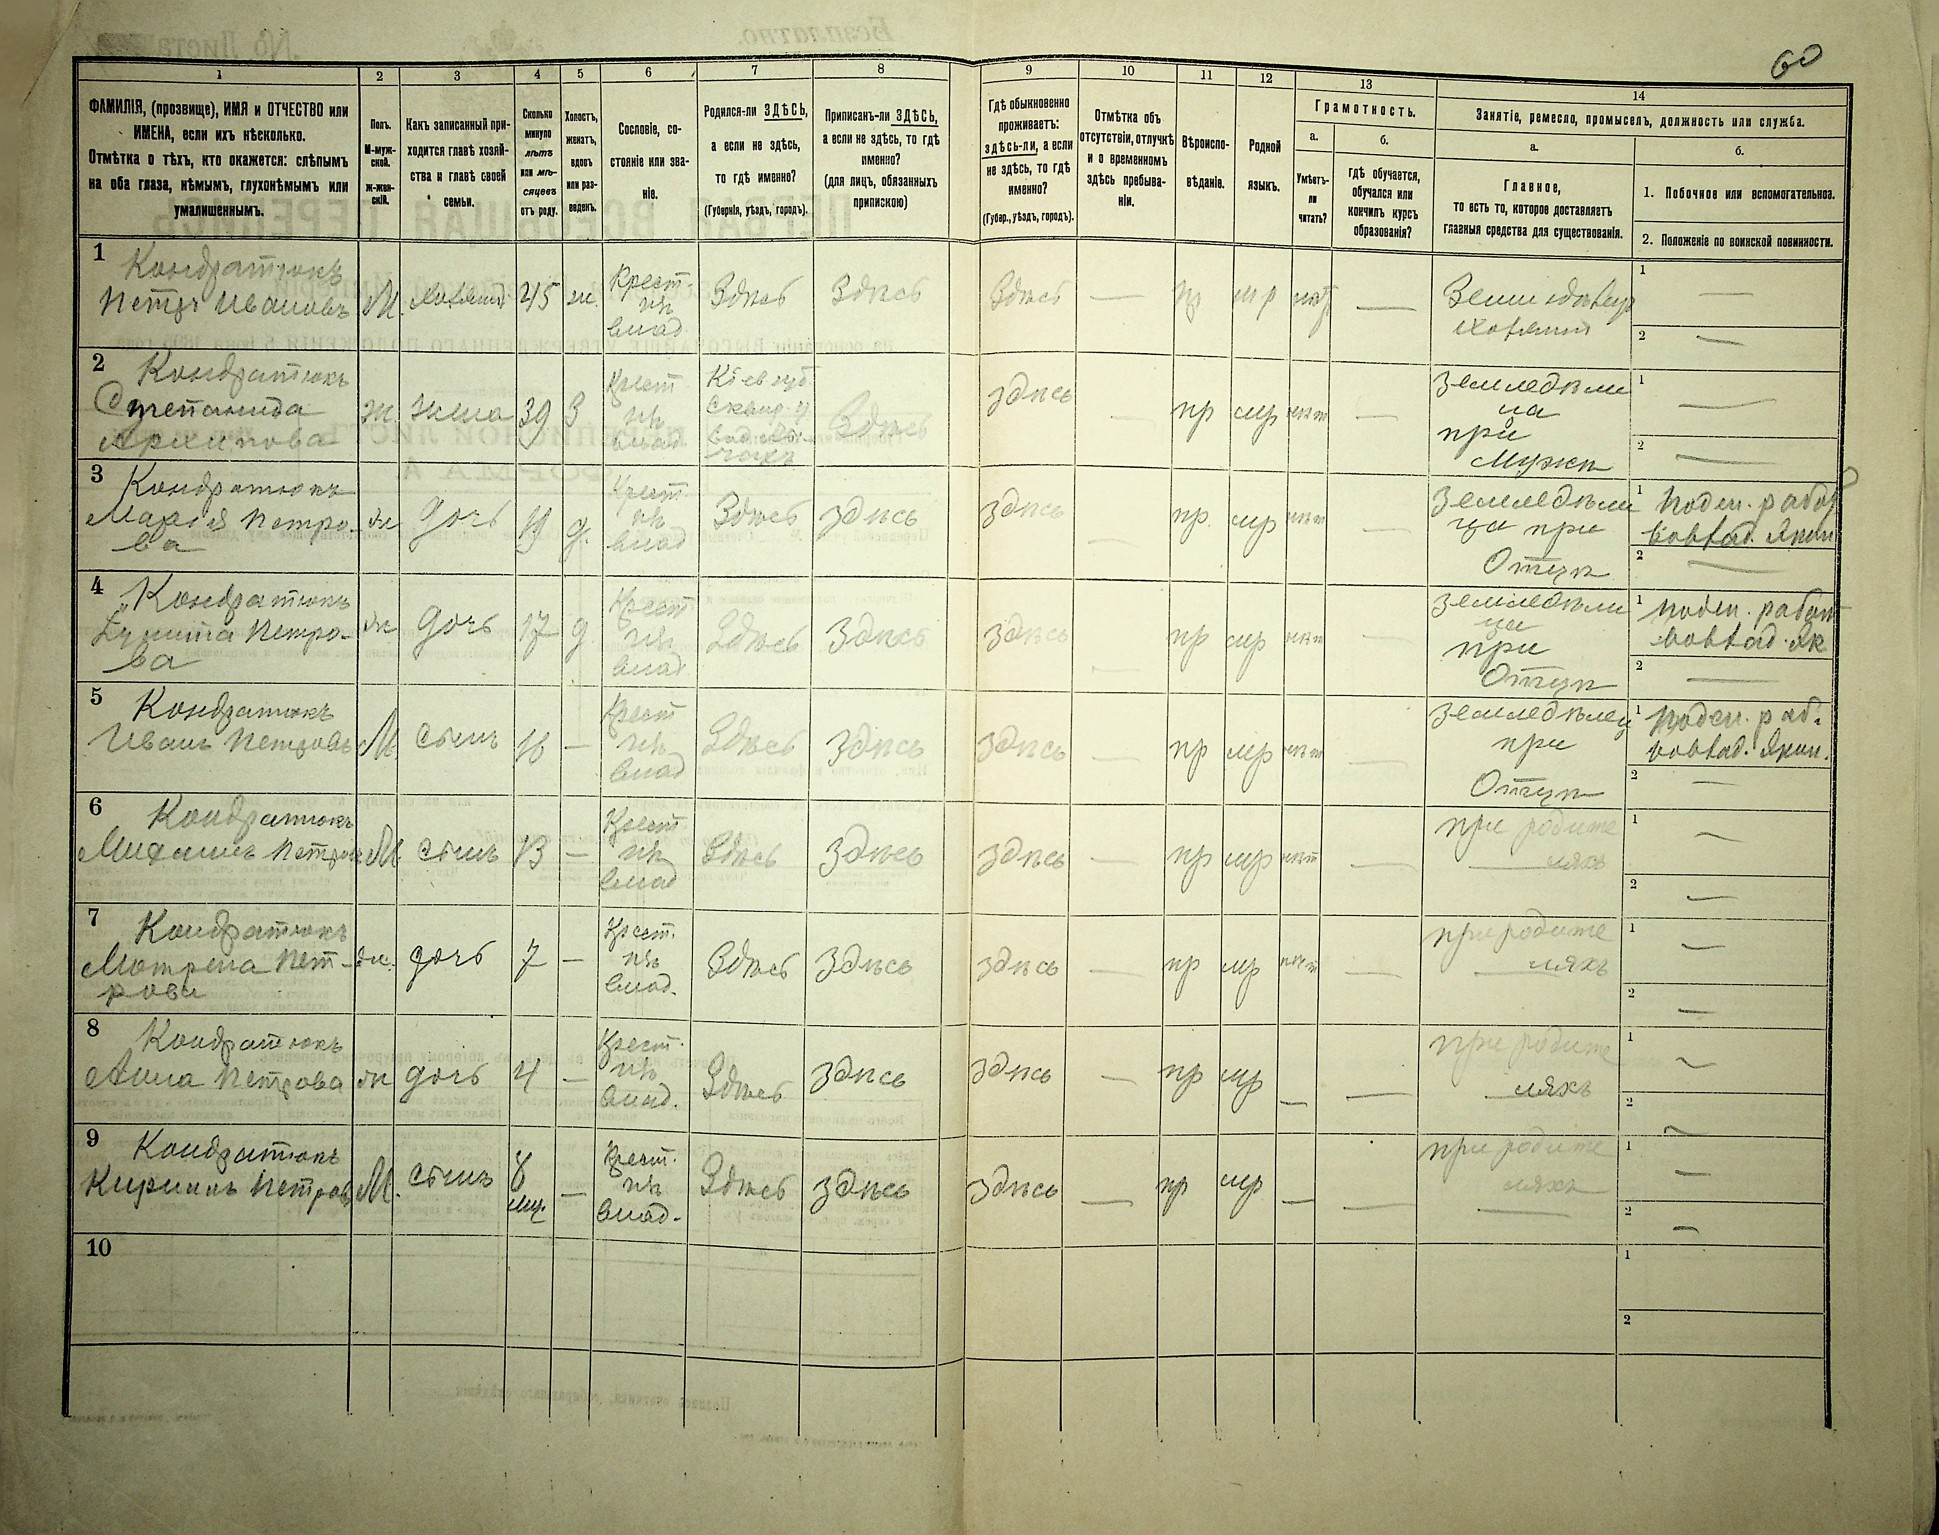 60
1
2
3
4
5
6
7
8
9
10
11
12
13
14
ФАМИЛІЯ, (прозвище), ИМЯ и ОТЧЕСТВО или
ИМЕНА, если ихъ нѣсколько.
Отмѣтка о тѣхъ, кто окажется: слѣпымъ
на оба глаза, нѣмымъ, глухонѣмымъ или
умалишеннымъ.
Полъ.
М-муж-
ской.
ж-жен-
скій.
Какъ записанный при-
ходится главѣ хозяй-
ства и главѣ своей
семьи.
Сколько
минуло
лѣтъ
или мѣ-
сяцевъ
отъ роду.
Холостъ,
женатъ,
вдовъ
или раз-
веденъ.
Сословіе, со-
стояніе или зва-
ніе.
Родился-ли ЗДѢСЬ,
а если не здѣсь,
то гдѣ именно?
(Губернія, уѣздъ, городъ).
Приписанъ-ли ЗДѢСЬ,
а если не здѣсь, то гдѣ
именно?
(для лицъ, обязанныхъ
припискою)
Гдѣ обыкновенно
проживаетъ:
здѣсь-ли, а если
не здѣсь, то гдѣ
именно?
(Губер., уѣздъ, городъ).
Отмѣтка объ
отсутствіи, отлучкѣ
и о временномъ
здѣсь пребыва-
ніи.
Вѣроиспо-
вѣданіе.
Родной
языкъ.
Грамотность.
а.
Умѣетъ-
ли
читать?
б.
гдѣ обучается,
обучался или
кончилъ курсъ
образованія?
Занятіе, ремесло, промыселъ, должность или служба.
а.
Главное,
то есть то, которое доставляетъ
главныя средства для существованія.
б.
1. Побочное или вспомогательное.
2. Положеніе по воинской повинности.
1
Кондратюкъ
Петръ Ивановъ
М.
хозяинъ
45
ж.
Крест.
изъ
влад
Здѣсь
Здѣсь
Здѣсь
—
пр
мр
нѣт
—
Земледѣлец
хозяинъ
1
—
2
—
2
Кондратюкъ
Степанида
Архипова
ж.
жена
39
З
Крест
изъ
влад
Кіев губ
Сквир. у.
Здѣсь
здѣсь
—
пр
мр
нѣт
—
земледѣли
ца
при
Мужи
1
—
2
—
3
Кондратюкъ
Марія Петро-
ва
ж
дочь
19
д.
Крест
изъ
влад
Здѣсь
здѣсь
здѣсь
—
пр.
мр
нѣт
—
земледѣли
ца при
Отцѣ
1 поден. работ
2
—
4
Кондратюкъ
Петро-
ва
ж
дочь
17
д
Крест
изъ
влад
Здѣсь
здѣсь
здѣсь
—
пр
мр
нѣт
—
земледѣли
ца
при
Отцѣ
1 поден. работ
2
—
5
Кондратюкъ
Иванъ Петровъ
М.
сынъ
16
—
Крест
изъ
влад
Здѣсь
здѣсь
здѣсь
—
пр
мр
нѣт
—
земледѣлец
при
Отцѣ
1 поден. раб.
2
—
6
Кондратюкъ
Михаилъ Петров
М.
сынъ
13
—
Крест
изъ
влад
Здѣсь
здѣсь
здѣсь
—
пр
мр
нѣт
—
при родите
ляхъ
1
—
2
—
7
Кондратюкъ
Мотрена Пет-
рова
ж.
дочь
7
—
Крест.
изъ
влад.
Здѣсь
здѣсь
здѣсь
—
пр
мр
нѣт
—
при родите
ляхъ
1
—
2
—
8
Кондратюкъ
Анна Петрова
ж
дочь
4
—
Крест.
изъ
влад.
Здѣсь
здѣсь
здѣсь
—
пр
мр
—
—
при родите
ляхъ
1
—
2
—
9
Кондратюкъ
Кирилъ Петров
М.
сынъ
8
мц.
—
Крест.
изъ
влад.
Здѣсь
здѣсь
здѣсь
—
пр
мр
—
—
при родите
ляхъ
1
—
2
—
10
1
2